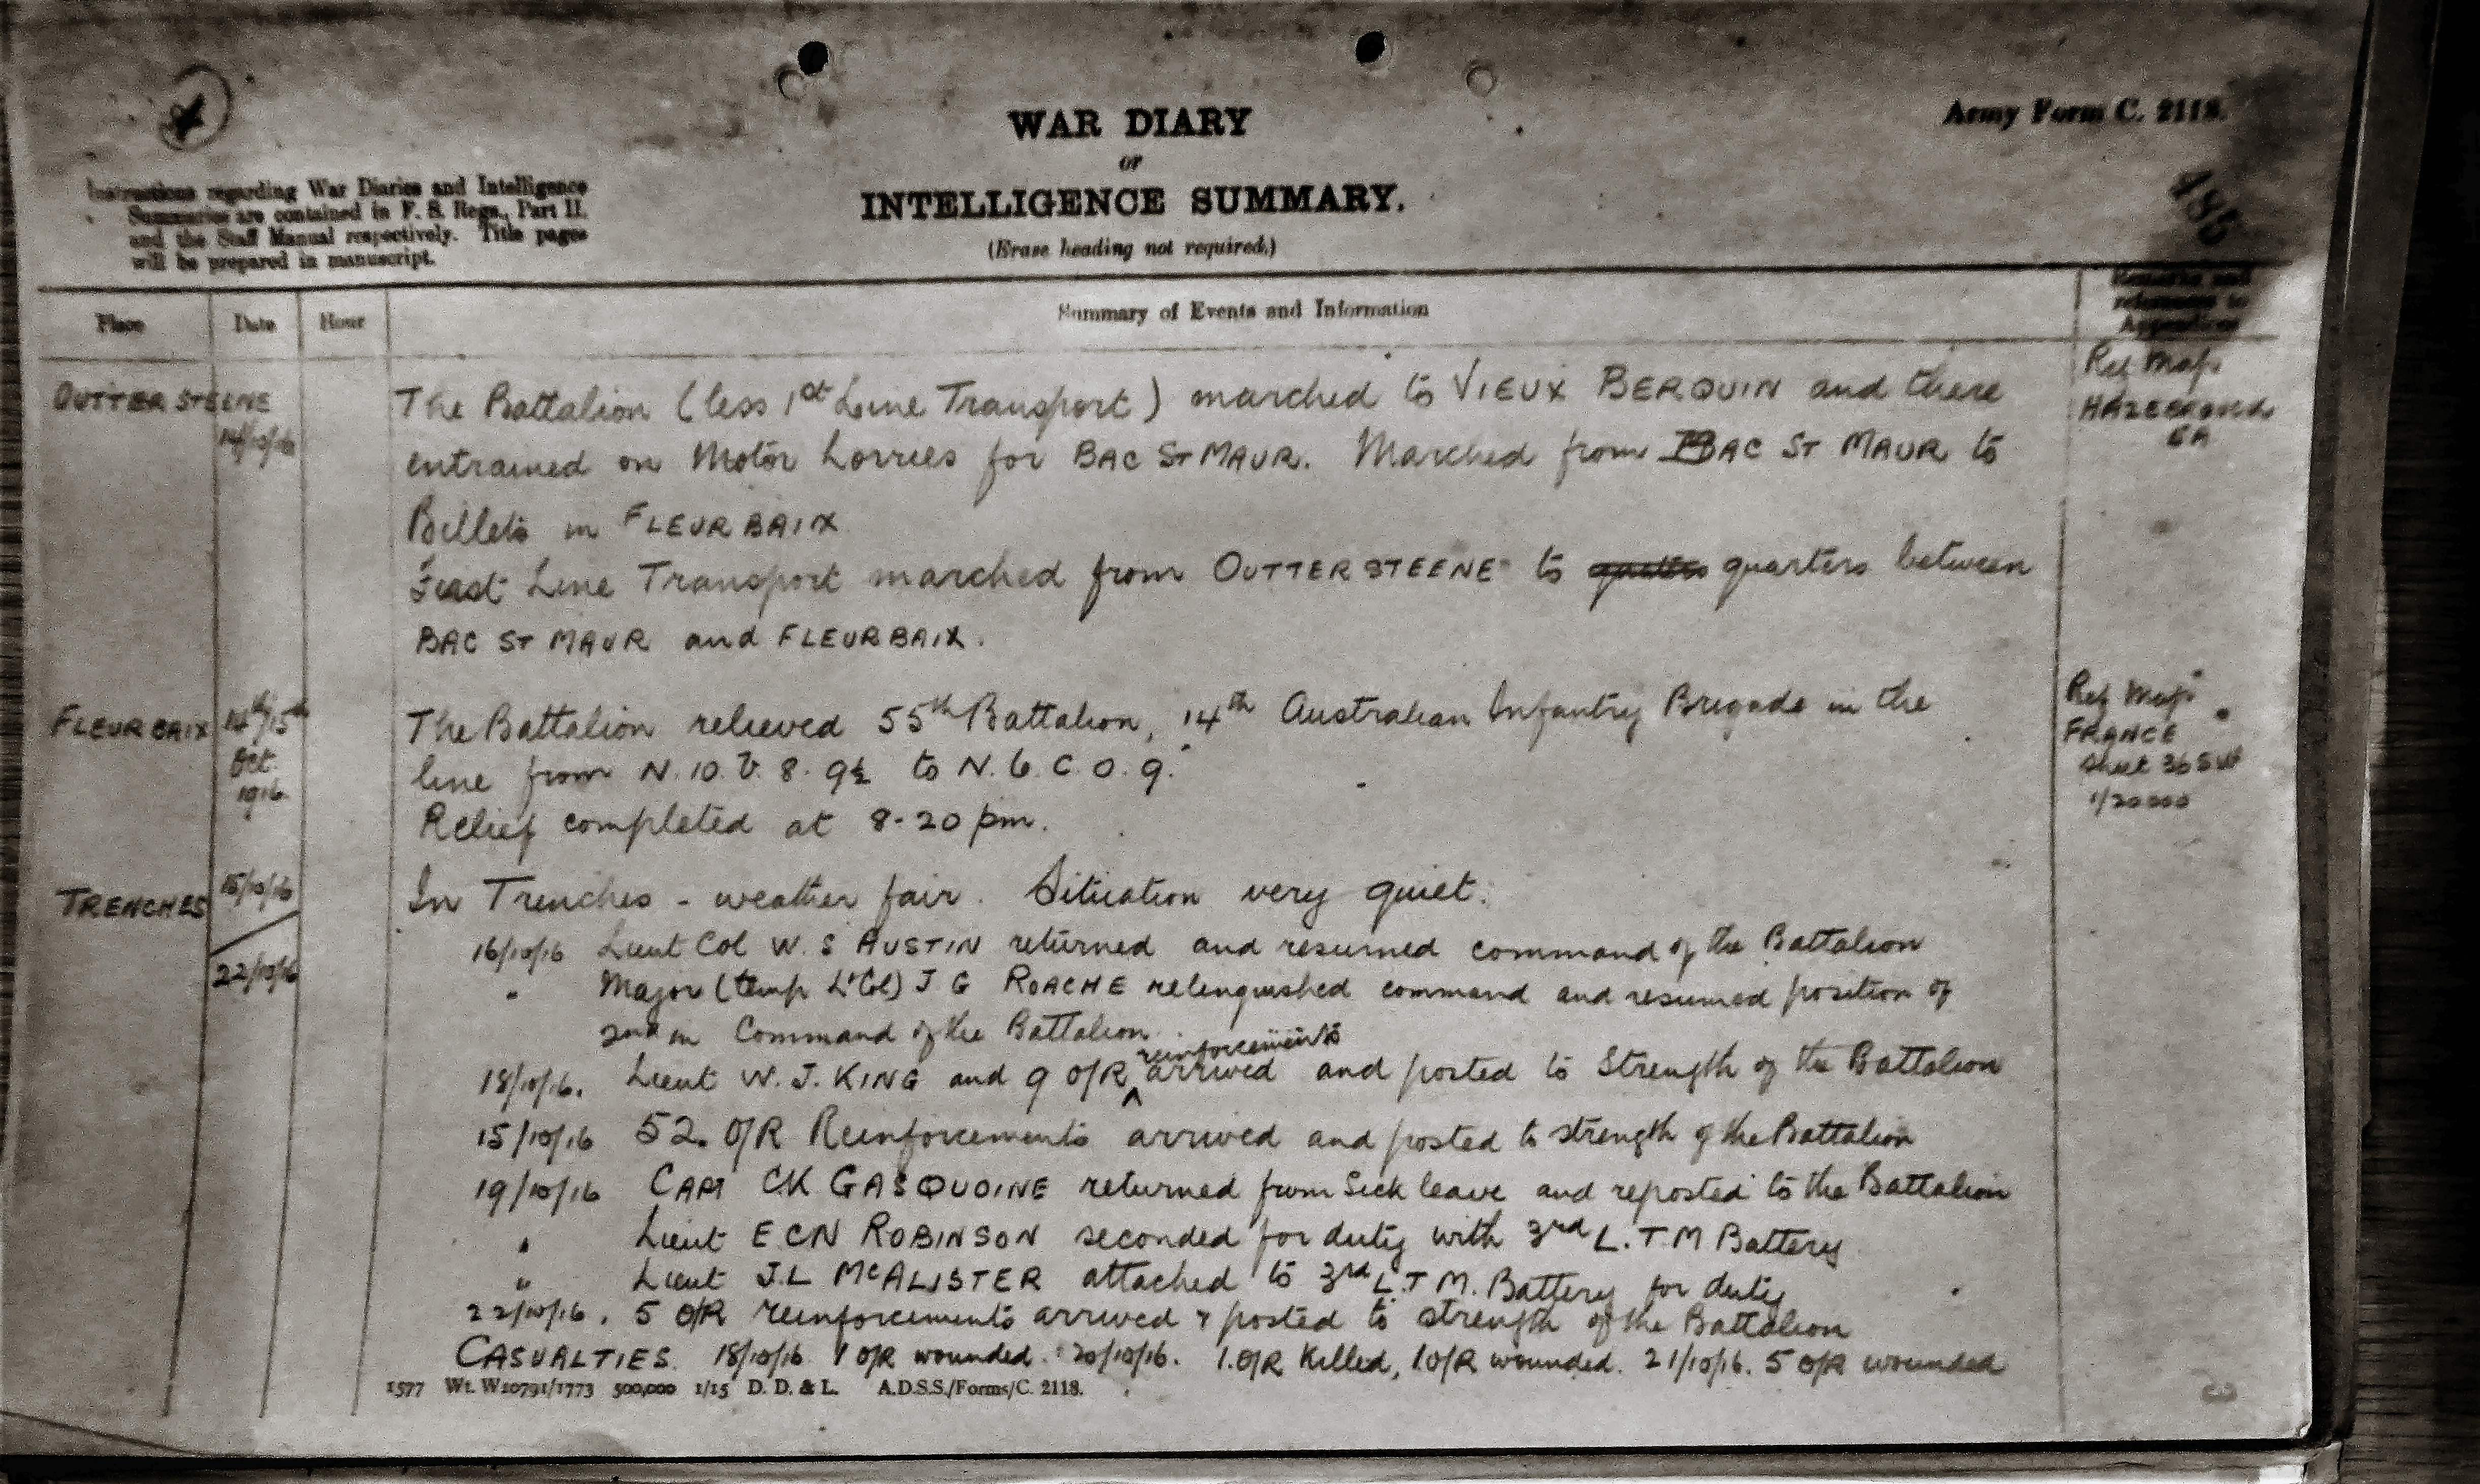 4
WAR DIARY
or
INTELLIGENCE SUMMARY.
(Erase heading not required.)
Army Form C. 2118.
485
Instructions regarding War Diaries and Intelligence
Summaries are contained in F. S. Regs., Part II.
and the Staff Manual respectively. Title pages
will be prepared in manuscript.
Place Date Hour Summary of Events and Information
Remarks and
references to
Appendices
OUTTERSTEENE
14/10/16
The Battalion (less 1st Line Transport) marched to VIEUX BERQUIN and there
entrained on Motor Lorries for BAC ST MAUR. Marched from BAC ST MAUR to
Billets in FLEURBAIX
First Line Transport marched from OUTTERSTEENE to quarters between
BAC ST MAUR and FLEURBAIX.
Ref Map
5A
FLEURBAIX
14th/15th
Oct.
1916
The Battalion relieved 55th Battalion, 14th Australian Infantry Brigade in the
line from N.10.b.8.9½ to N.6.C.0.9.
Relief completed at 8-20 pm.
Ref Map
FRANCE
Sheet 36 SW
1/20000
TRENCHES
15/10/16
22/10/16
In Trenches - weather fair. Situation very quiet.
16/10/16 Lieut Col W. S AUSTIN returned and resumed command of the Battalion
" Major (temp Lt Col) J G ROACHE relinquished command and resumed position of
2nd in Command of the Battalion.
reinforcements
18/10/16. Lieut W. J. KING and 9 O/R ^ arrived and posted to Strength of the Battalion
15/10/16 52. O/R Reinforcements arrived and posted to strength of the Battalion
19/10/16 CAPT CK GASQUOINE returned from Sick leave and reposted to the Battalion
" Lieut E CN ROBINSON seconded for duty with 3rd L.T M Battery
" Lieut J.L McALISTER attached to 3rd L.T M. Battery for duty
22/10/16. 5 O/R reinforcements arrived & posted to strength of the Battalion
CASUALTIES. 18/10/16 1 O/R wounded. 20/10/16. 1.O/R Killed, 1 O/R wounded. 21/10/16. 5 O/R wounded
1577 Wt. W10791/1773 500,000 1/15 D. D. & L. A.D.S.S./Forms/C. 2118.